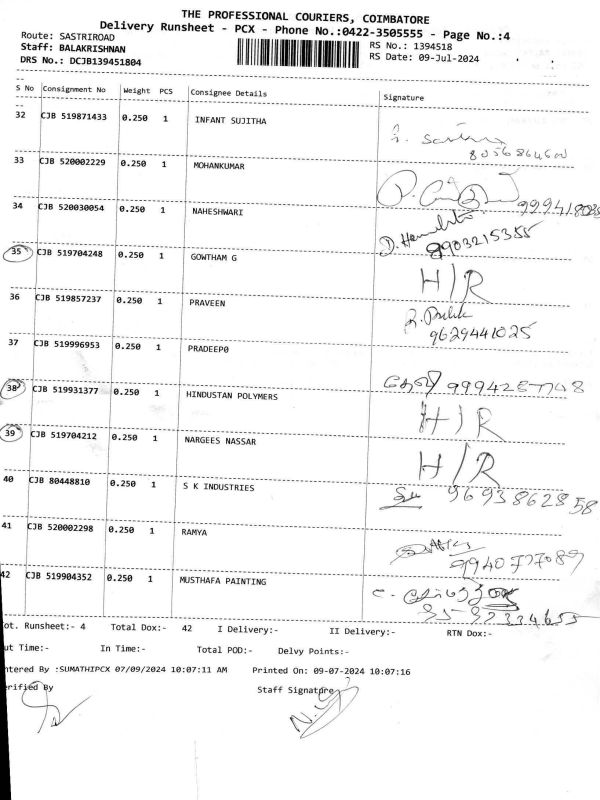 THE PROFESSIONAL COURIERS, COIMBATORE
Delivery Runsheet - PCX - Phone No.:0422-3505555 - Page No.:4
Route: SASTRIROAD
RS No.: 1394518
Staff: BALAKRISHNAN
RS Date: 09-Jul-2024
DRS No.: DCJB139451804
S No Consignment No Weight PCS Consignee Details Signature
32 CJB 519871433 0.250 1 INFANT SUJITHA
33 CJB 520002229 0.250 1 MOHANKUMAR
34 CJB 520030054 0.250 1 NAHESHWARI
8903215355
35 CJB 519704248 0.250 1 GOWTHAM G H/R
36 CJB 519857237 0.250 1 PRAVEEN
9629441025
37 CJB 519996953 0.250 1 PRADEEP0
38 CJB 519931377 0.250 1 HINDUSTAN POLYMERS H/R
39 CJB 519704212 0.250 1 NARGEES NASSAR H/R
40 CJB 80448810 0.250 1 S K INDUSTRIES 9693862858
41 CJB 520002298 0.250 1 RAMYA
9940777089
42 CJB 519904352 0.250 1 MUSTHAFA PAINTING
ot. Runsheet:- 4 Total Dox:- 42 I Delivery:- II Delivery:- RTN Dox:-
ut Time:- In Time:- Total POD:- Delvy Points:-
ntered By :SUMATHIPCX 07/09/2024 10:07:11 AM Printed On: 09-07-2024 10:07:16
erified By Staff Signature